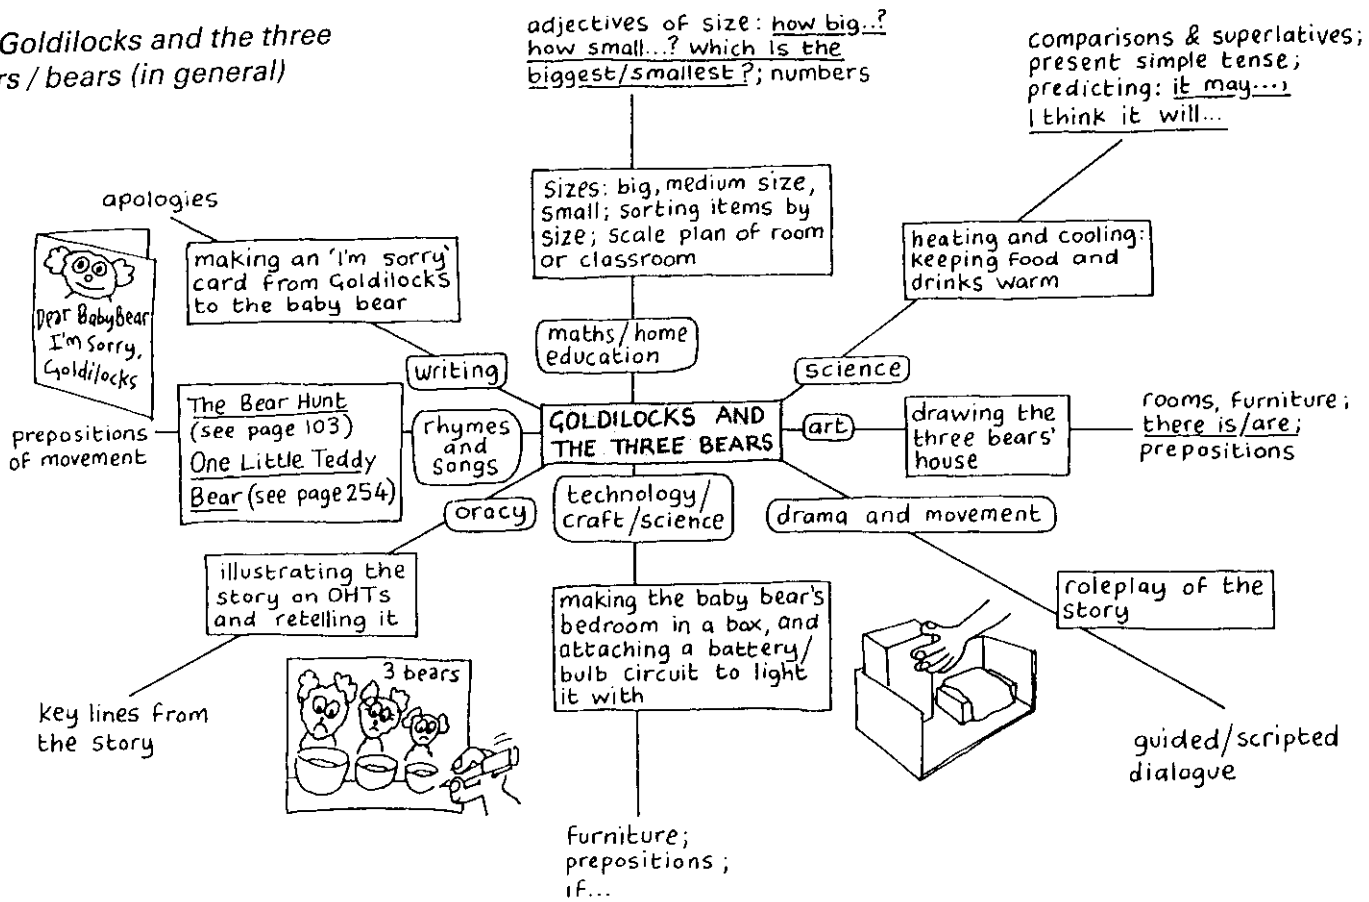 Goldilocks and the three
rs / bears (in general)
adjectives of size: how big..?
how small...? which is the
biggest/smallest?; numbers
comparisons & superlatives;
present simple tense;
predicting: it may...,
I think it will...
apologies
making an 'I'm sorry'
card from Goldilocks
to the baby bear
Dear Baby Bear
I'm sorry,
Goldilocks
sizes: big, medium size,
small; sorting items by
size; scale plan of room
or classroom
heating and cooling:
keeping food and
drinks warm
maths/home
education
writing
science
prepositions
of movement
The Bear Hunt
(see page 103)
One Little Teddy
Bear (see page 254)
rhymes
and
songs
GOLDILOCKS AND
THE THREE BEARS
art
drawing the
three bears'
house
rooms, furniture;
there is/are;
prepositions
oracy
technology/
craft/science
drama and movement
illustrating the
story on OHTs
and retelling it
making the baby bear's
bedroom in a box, and
attaching a battery/
bulb circuit to light
it with
roleplay of the
story
key lines from
the story
3 bears
guided/scripted
dialogue
furniture;
prepositions;
if...